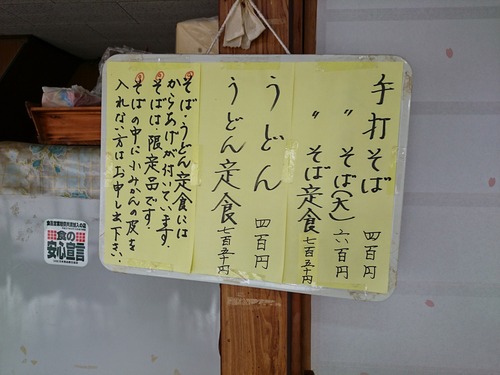 手打そば 四百円
〃 そば(大) 六百円
〃 そば定食 七百五十円
うどん 四百円
うどん定食 七百五十円
①そば・うどん定食には
からあげが付いています。
②そばは限定品です。
③そばの中に小みかんの皮を
入れない方はお申し出下さい。
食の
安心宣言